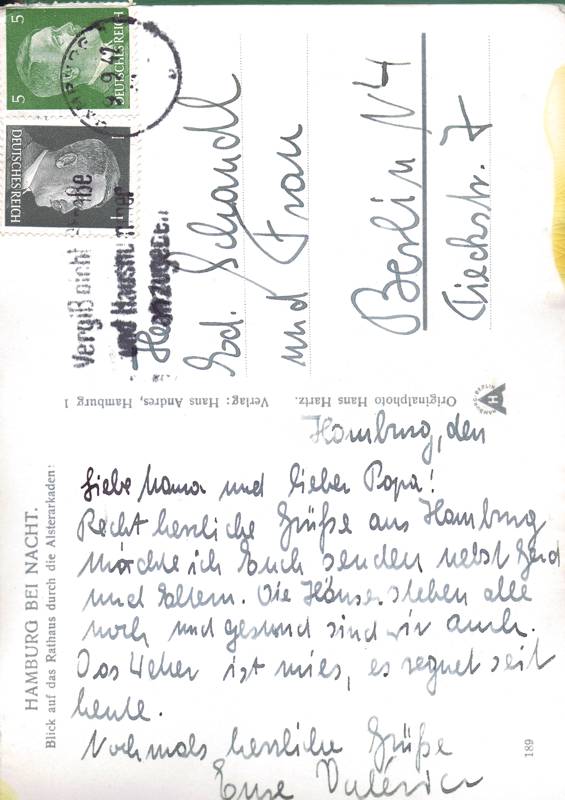 HAMBURG BEI NACHT.
Blick auf das Rathaus durch die Alsterarkaden:
Hamburg, den
Liebe Mama und lieber Papa!
Recht herzliche Grüße aus Hamburg
möchte ich Euch senden nebst Gerd
und Eltern. Die Häuser stehen alle
noch und gesund sind wir auch.
Das Wetter ist mies, es regnet seit
heute.
Nochmals herzliche Grüße
Eure
189
Originalphoto Hans Hartz.
Verlag: Hans Andres, Hamburg 1
H
HAMBURG-BERLIN
5 5
DEUTSCHES REICH
1 1
DEUTSCHES REICH
HAMBURG
9.42
Vergiß nicht Straße
und Hausnummer
anzugeben
Ed. Schandl
und Frau
Berlin N 4
Tieckstr. 7